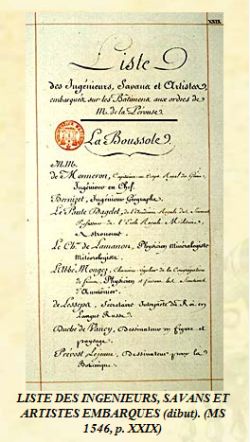 XXIX
Liste
des Ingénieurs, Savans et Artistes
embarqués sur les Bâtimens aux ordres de
M. de la Pérouse.
La Boussole.
M.M.
de Monneron, Capitaine au Corps Royal du Génie
Ingénieur en Chef.
Bernizet, Ingénieur Géographe.
Le Paute Dagelet, de l'Académie Royale des Sciences
Professeur de l'Ecole Royale Militaire,
Astronome.
Le Ch.er de Lamanon, Physicien Minéralogiste
Météorologiste.
L'Abbé Mongez, Chanoine régulier de la Congrégation
de France, Physicien et faisant les fonctions
d'Aumônier.
de Lesseps, Secrétaire Interprète du Roi en
Langue Russe.
Duché de Vancy, Dessinateur en figure et
paysage.
Prévost Lejeune, Dessinateur pour la
Botanique.
LISTE DES INGENIEURS, SAVANS ET
ARTISTES EMBARQUES (dibut). (MS
1546, p. XXIX)